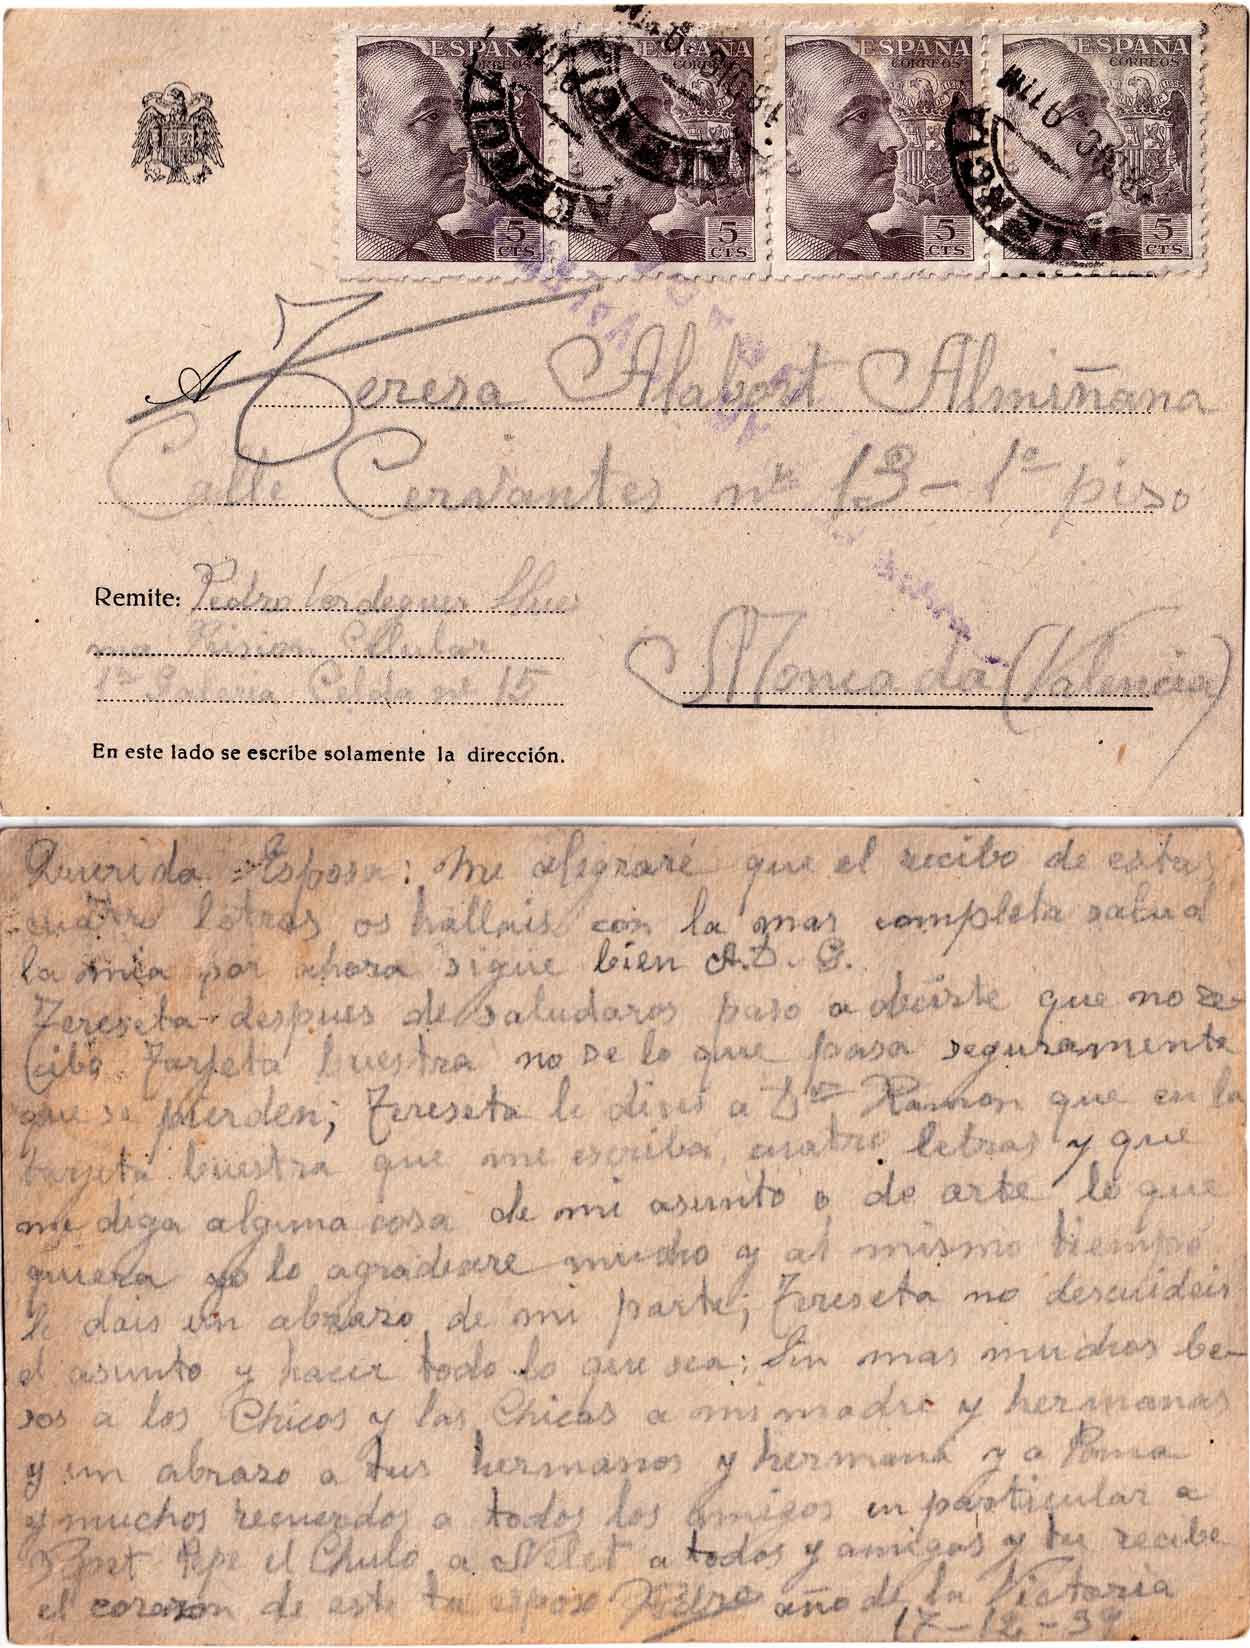 ESPAÑA
CORREOS
5
CTS
ESPAÑA
CORREOS
5
CTS
ESPAÑA
CORREOS
5
CTS
ESPAÑA
CORREOS
5
CTS
VALENCIA
A Teresa Alabort Almiñana
Calle Cervantes nº 13-1º piso
Remite: Pedro Verdeguer Llue
ma Prision Cellular
1ª Galeria Celda nº 15
Moncada (Valencia)
En este lado se escribe solamente la dirección.
Querida Esposa: Me alegraré que el recibo de estas
cuatro letras os hallais con la mas completa salud
la mia por ahora sigue bien A.D.G.
Tereseta despues de saludaros paso a decirte que no re-
cibo Tarjeta buestra no se lo que pasa seguramente
que se pierden; Tereseta le dices a Dn Ramon que en la
tarjeta buestra que me escriba cuatro letras y que
me diga alguna cosa de mi asunto o de arte lo que
quiera yo lo agradecere mucho y al mismo tiempo
le dais un abrazo de mi parte; Tereseta no descuideis
el asunto y hacer todo lo que sea; Sin mas muchos be-
sos a los Chicos y las Chicas a mi madre y hermanas
y un abrazo a tus hermanos y hermana y a Roma
y muchos recuerdos a todos los amigos en particular a
Pepe el Chulo a Nelet a todos y amigas y tu recibe
el corazon de este tu esposo Pedro año de la Victoria
17-12-39